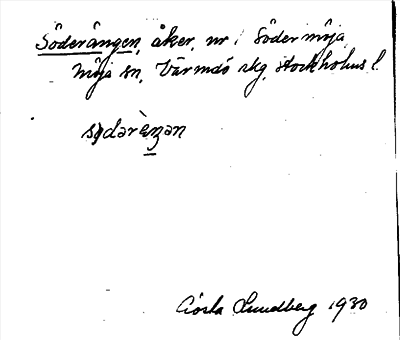 Söderängen, åker, nr 1 Södermöja,
Möja sn, Värmdö skg, Stockholms l.
sɷdərèŋən
Gösta Lundberg 1930